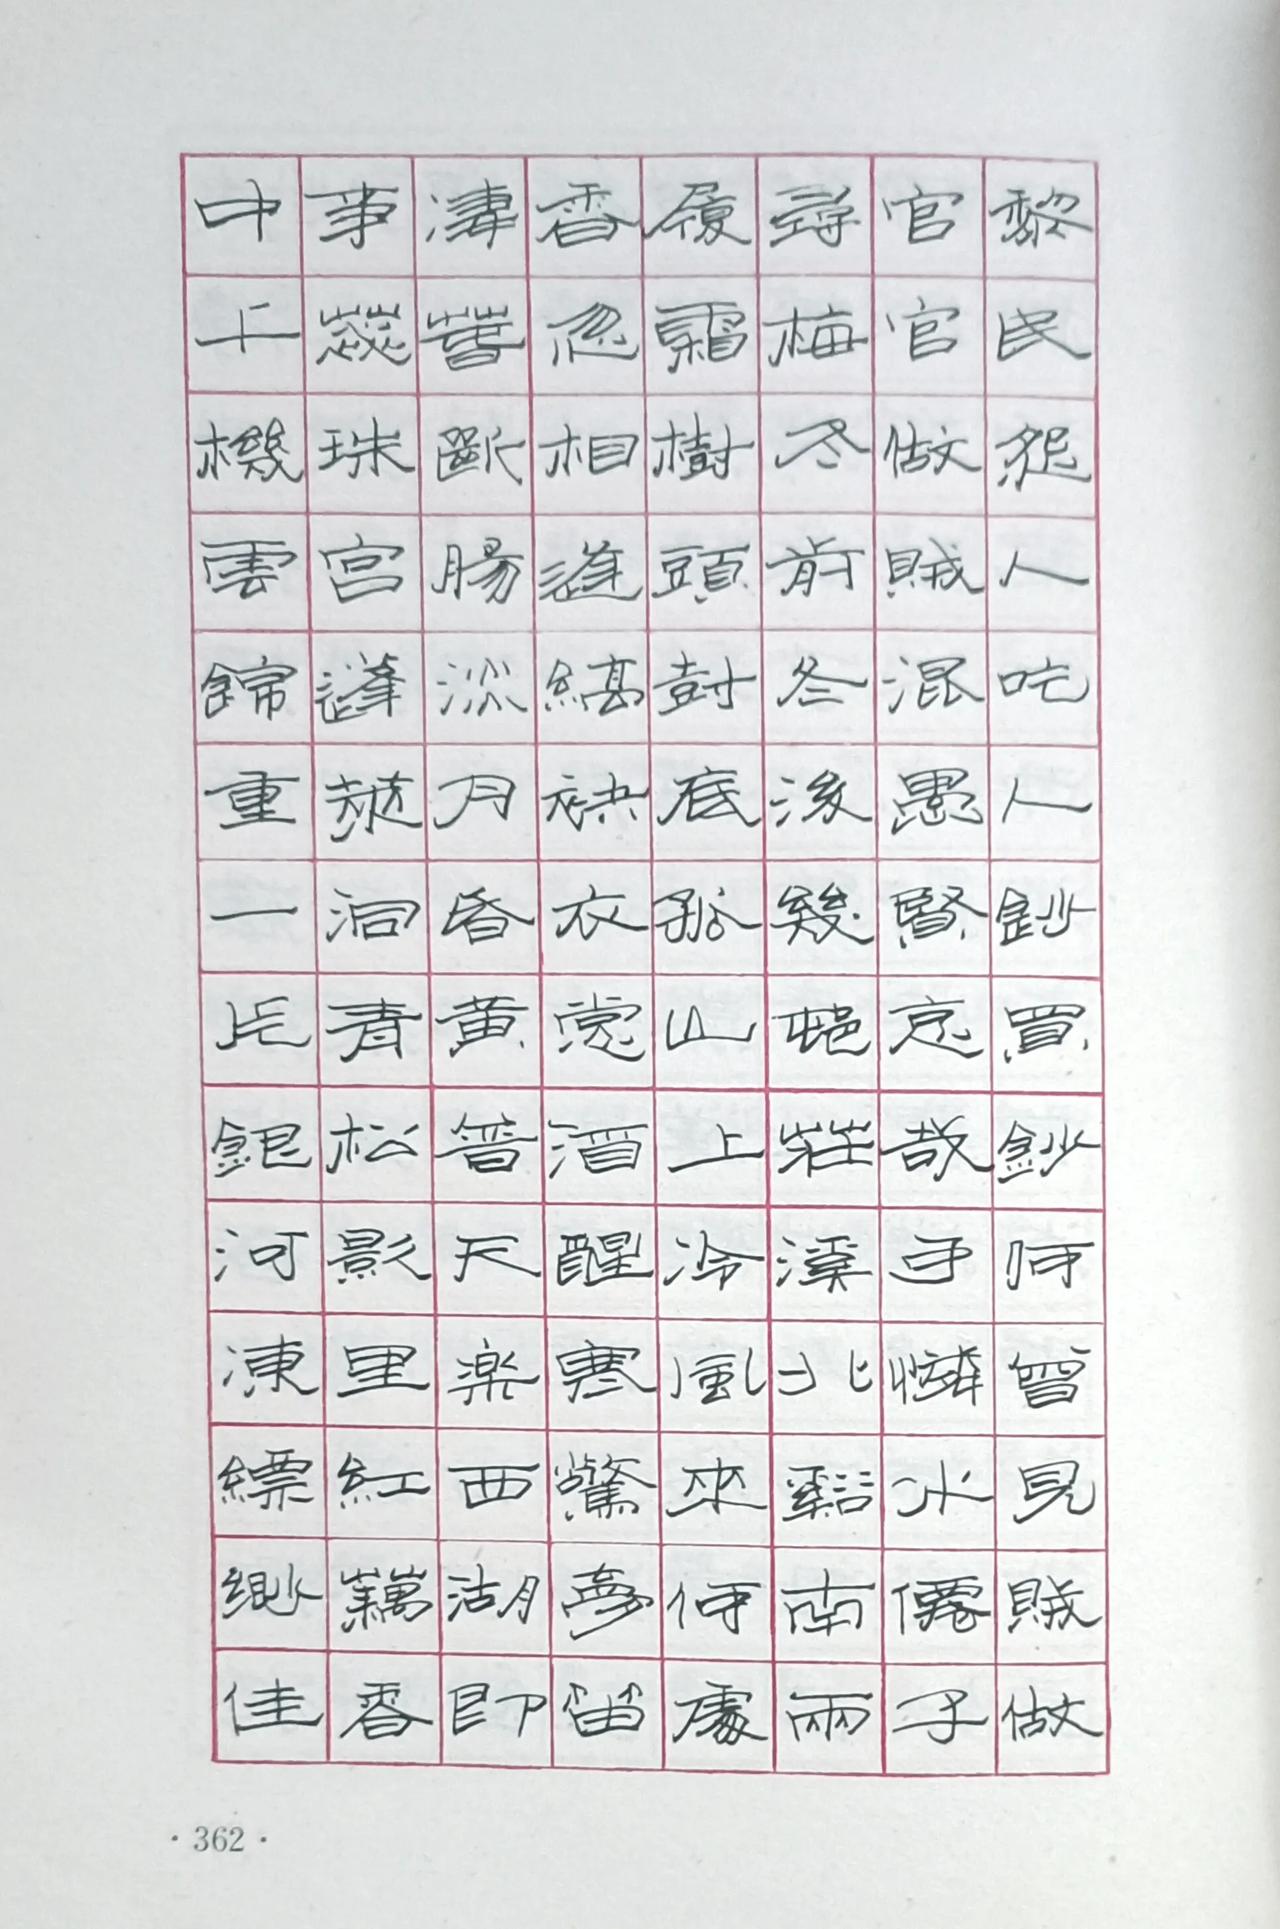 黎民怨人吃人鈔買鈔何曾見賊做
官官做賊混愚賢哀哉可憐水僊子
尋梅冬前冬後幾邨莊溪北谿南兩
履霜樹頭尌底孤山上冷風來何處
香忽相逢縞袂衣裳酒醒寒驚夢笛
淒萅斷腸淡月昏黃普天樂西湖即
事蕊珠宮蓬萊洞青松影里紅藕香
中千機雲錦重一片銀河凍縹緲佳
·362·